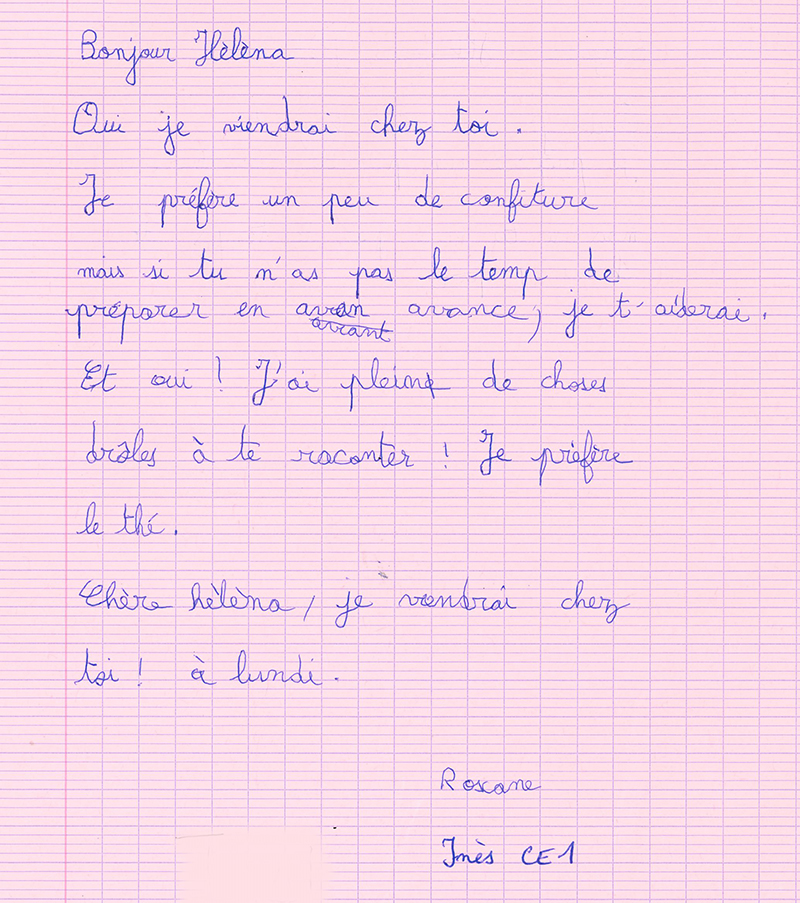 Bonjour Hèlèna
Oui je viendrai chez toi.
Je préfère un peu de confiture
mais si tu n'as pas le temp de
préparer en avan avance, je t'aiderai.
avant
Et oui ! J'ai pleing de choses
drôles à te raconter ! Je préfère
le thé.
Chère hèlèna, je vendrai chez
toi ! à lundi.
Roxane
Inès CE1